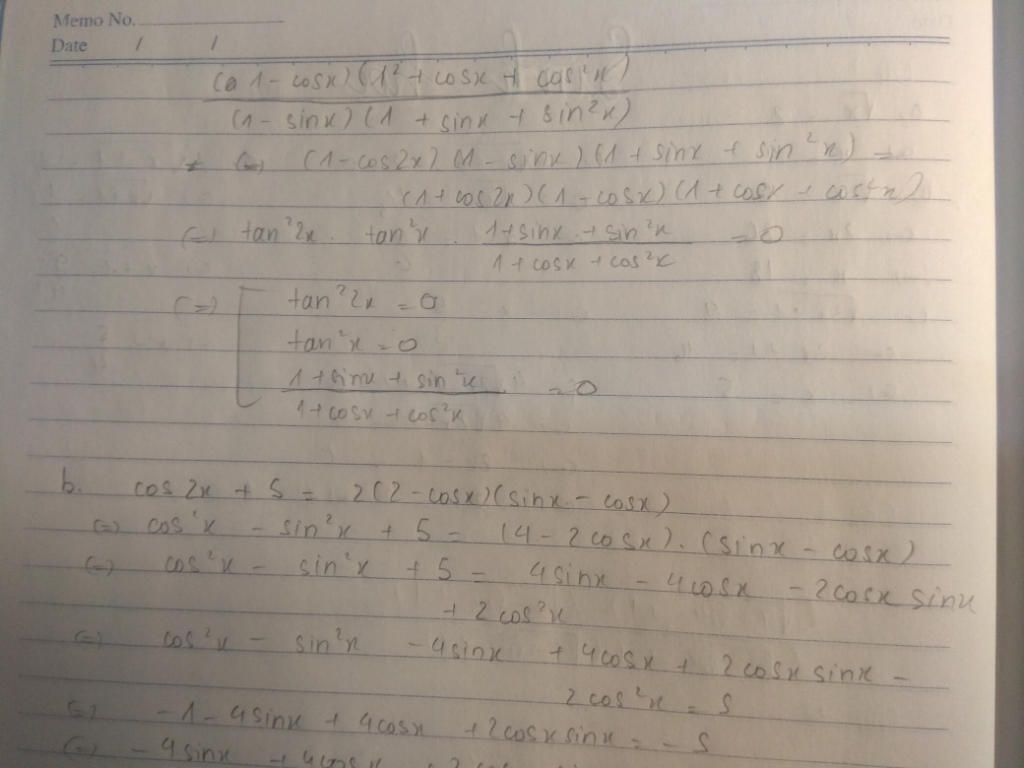 Memo No.
Date / /
(1 - cosx)(1² + cosx + cos²x)
(1 - sinx)(1 + sinx + sin²x)
(=) (1-cos2x)(1-sinx)(1+sinx + sin²x) =
(1+cos2x)(1-cosx)(1+cosx + cos²x)
(=) tan²2x . tan²x . 1+sinx + sin²x = 0
1+cosx + cos²x
(=) tan²2x = 0
tan²x = 0
1+sinx + sin²x = 0
1+cosx + cos²x
b. cos2x + 5 = 2(2-cosx)(sinx - cosx)
(=) cos²x - sin²x + 5 = (4-2cosx).(sinx - cosx)
(=) cos²x - sin²x + 5 = 4sinx - 4cosx - 2cosx sinx
+ 2cos²x
(=) cos²x - sin²x - 4sinx + 4cosx + 2cosx sinx -
2cos²x = 5
(=) -1 - 4sinx + 4cosx + 2cosxsinx = -5
(=) -4sinx + 4cosx